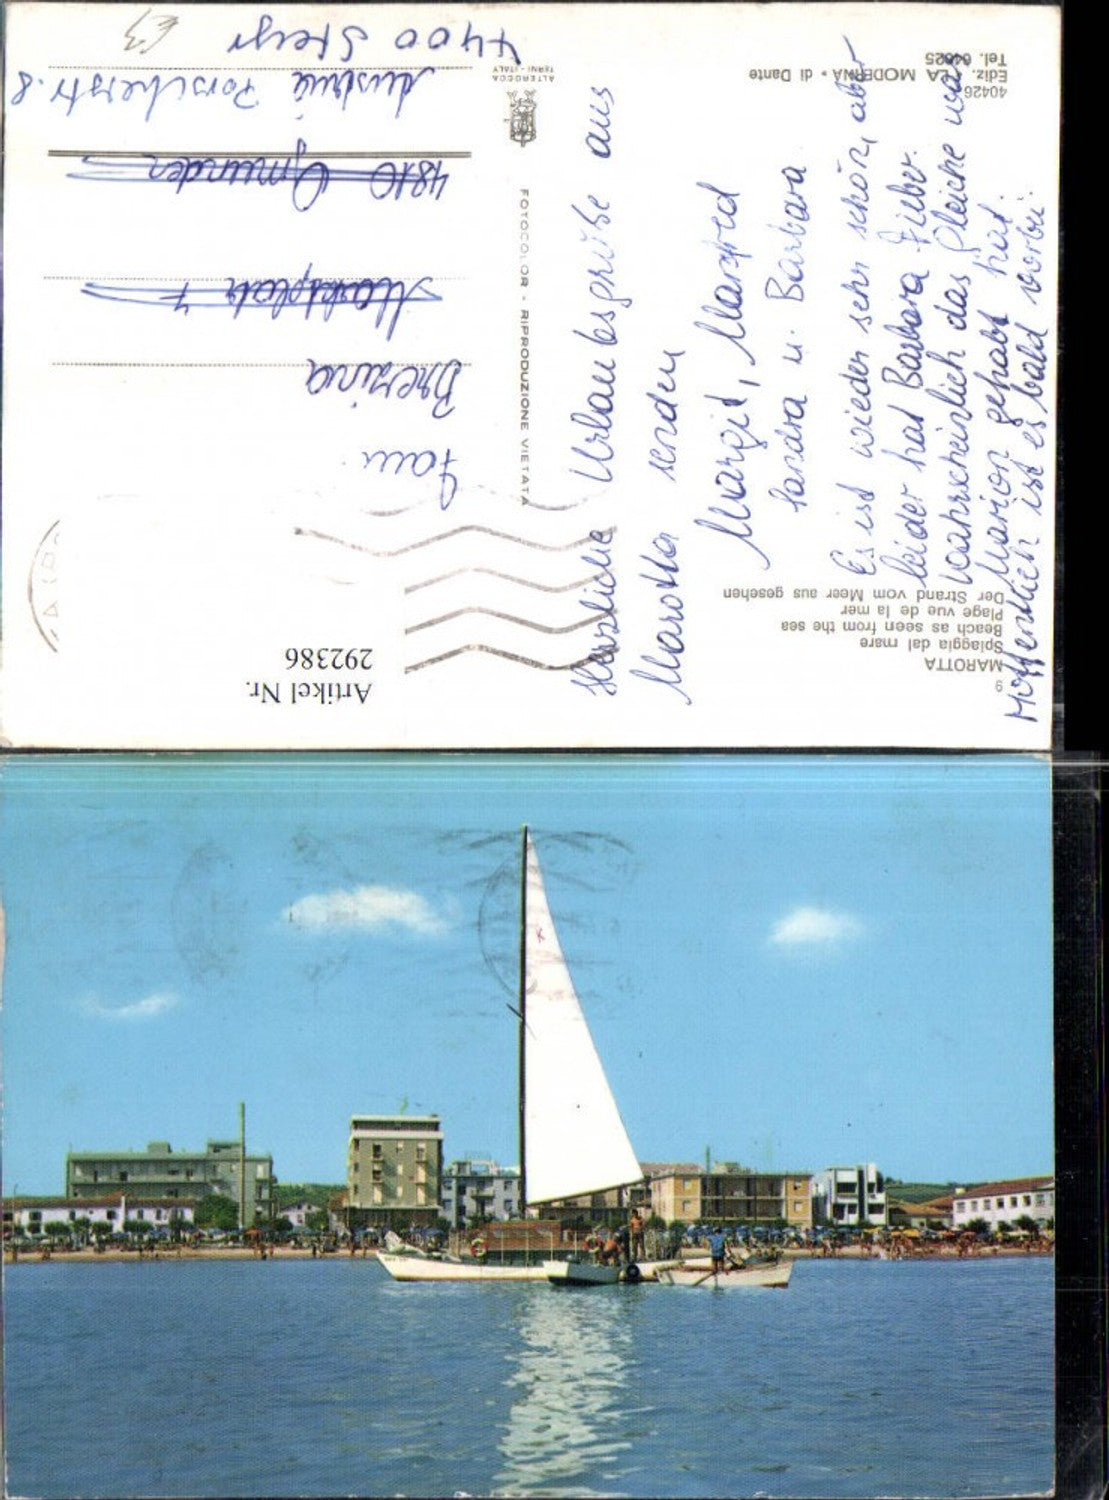 9
MAROTTA
Spiaggia dal mare
Beach as seen from the sea
Plage vue de la mer
Der Strand vom Meer aus gesehen
Artikel Nr.
292386
Herzliche Urlaubsgrüße aus
Marotta senden
Margit, Manfred
Sandra u. Barbara
Es ist wieder sehr schön, aber
leider hat Barbara Fieber.
Wahrscheinlich das Gleiche was
Marion gehabt hat.
Hoffentlich ist es bald vorbei.
FOTOCOLOR - RIPRODUZIONE VIETATA
ALTEROCCA
TERNI - ITALY
Fam.
Brezina
Marktplatz 7
4810 Gmunden
Austria Porscherstr. 8
4400 Steyr
£3
40426
Ediz. "LA MODERNA" di Dante
Tel. 64625